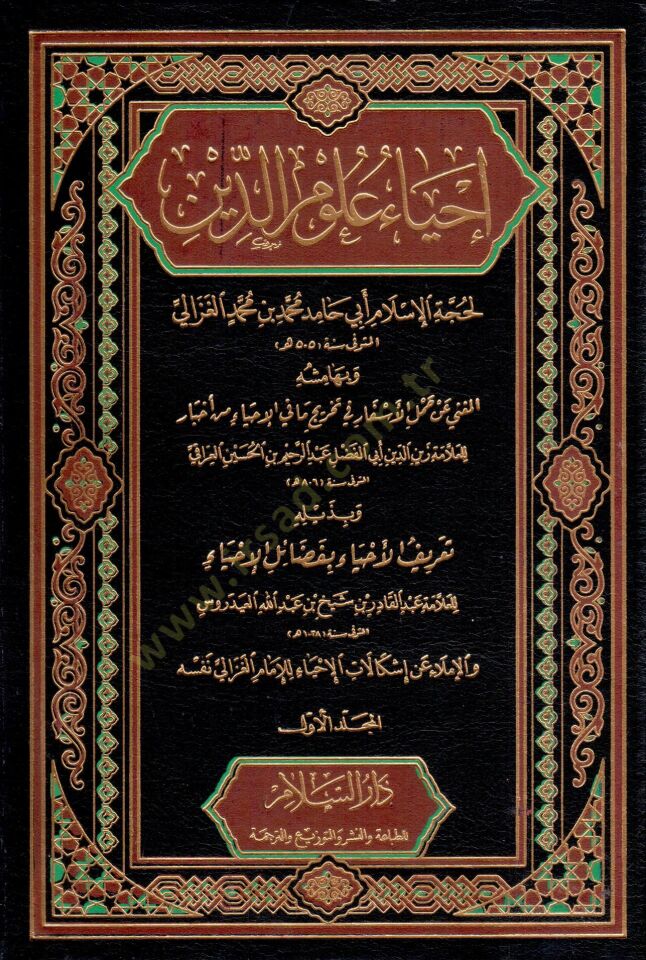 إِحْيَاءُ عُلُومِ الدِّينِ
لحجة الإسلام أبي حامد محمد بن محمد الغزالي
المتوفى سنة (٥٠٥هـ)
وبهامشه
المغني عن حمل الأسفار في تخريج ما في الإحياء من أخبار
للعلامة زين الدين أبي الفضل عبد الرحيم بن الحسين العراقي
المتوفى سنة (٨٠٦هـ)
وبذيله
تعريف الأحياء بفضائل الإحياء
للعلامة عبد القادر بن شيخ بن عبد الله العيدروس
المتوفى سنة (١٠٣٨هـ)
والإملاء عن إشكالات الإحياء للإمام الغزالي نفسه
المجلد الأول
دار السلام
للطباعة والنشر والتوزيع والترجمة
www.irsad.com.tr